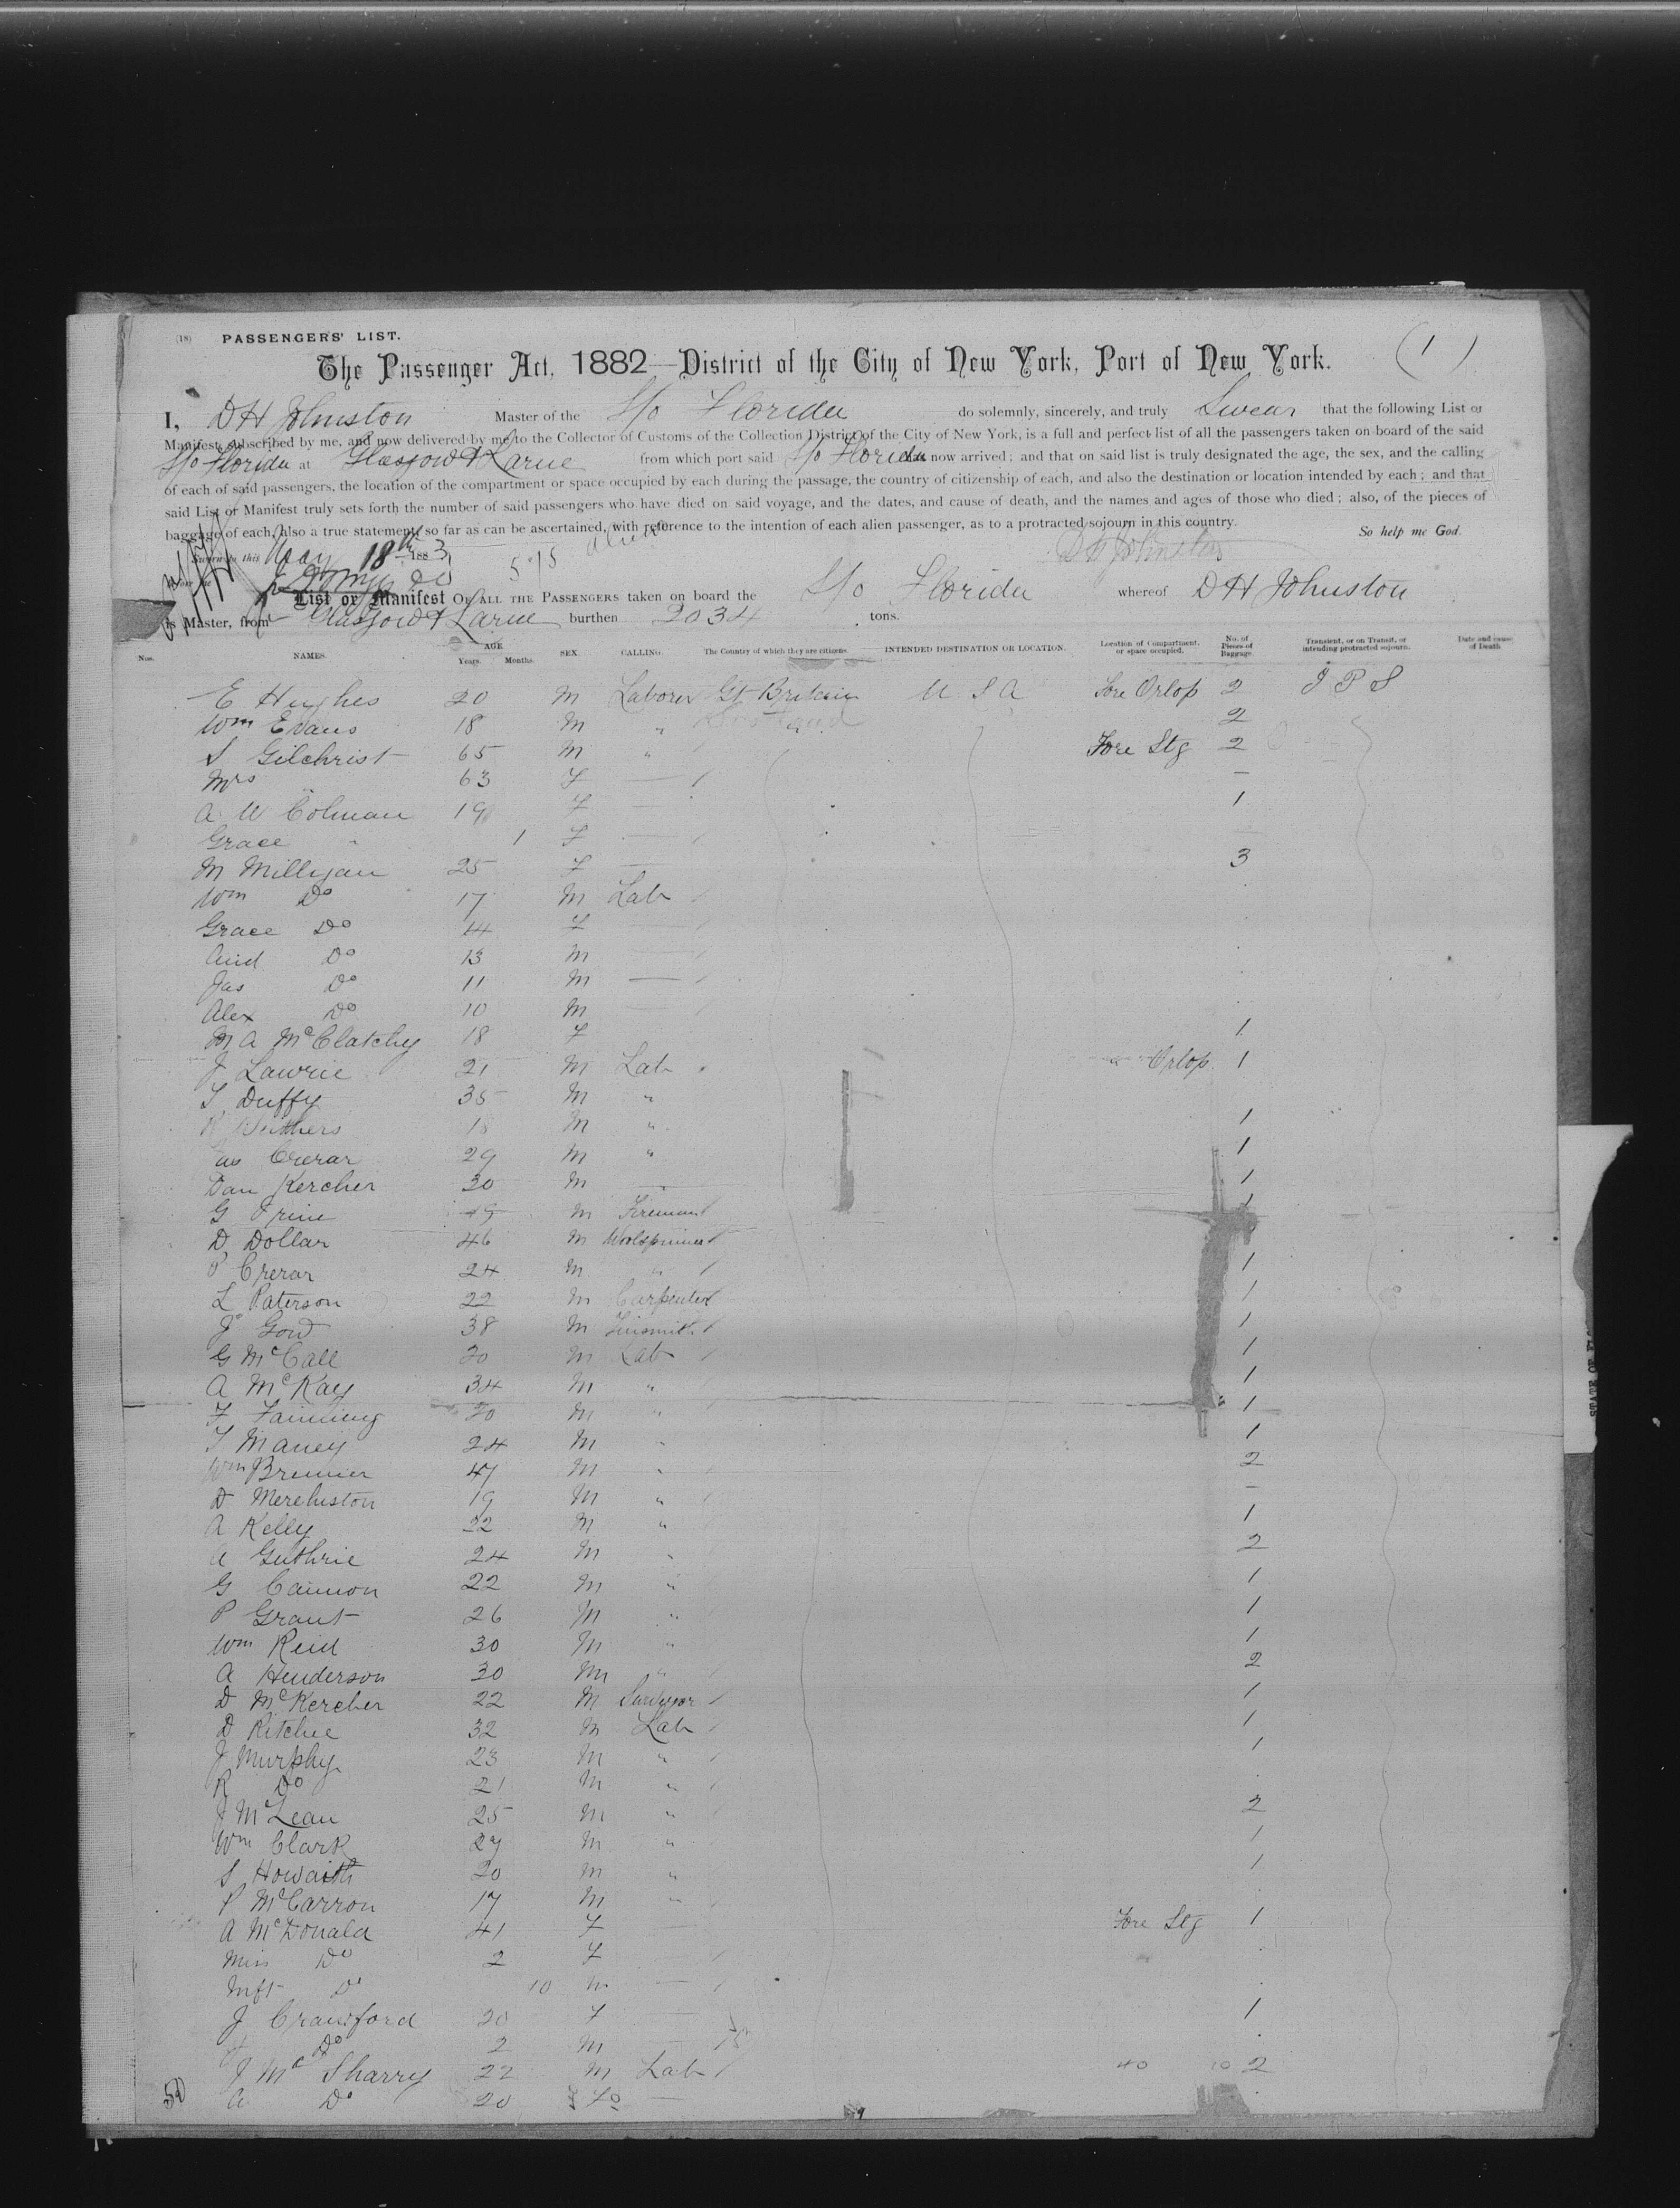 (18) PASSENGERS' LIST.
(1)
The Passenger Act, 1882—District of the City of New York, Port of New York.
I, D H Johnston Master of the S/o Florida do solemnly, sincerely, and truly Swear that the following List or
Manifest, subscribed by me, and now delivered by me to the Collector of Customs of the Collection District of the City of New York, is a full and perfect list of all the passengers taken on board of the said
S/o Florida at Glasgow & Larne from which port said S/o Florida has now arrived; and that on said list is truly designated the age, the sex, and the calling
of each of said passengers, the location of the compartment or space occupied by each during the passage, the country of citizenship of each, and also the destination or location intended by each; and that
said List or Manifest truly sets forth the number of said passengers who have died on said voyage, and the dates, and cause of death, and the names and ages of those who died; also, of the pieces of
baggage of each, also a true statement, so far as can be ascertained, with reference to the intention of each alien passenger, as to a protracted sojourn in this country. So help me God.
Sworn to this May 18th 1883 D H Johnston
List or Manifest OF ALL THE PASSENGERS taken on board the S/o Florida whereof D H Johnston
is Master, from Glasgow & Larne burthen 2034 tons.
Nos. NAMES. AGE Years. Months. SEX. CALLING. The Country of which they are citizens. INTENDED DESTINATION OR LOCATION. Location of Compartment, or space occupied. No. of Pieces of Baggage. Transient, or on Transit, or intending protracted sojourn. Date and cause of Death
E Hughes 20 M Laborer Gt Britain U S A Fore Orlop 2 I P S
Wm Evans 18 M " " 2
S Gilchrist 65 M " Fore Stg 2
Mrs " 63 F — –
A W Colman 19 F — 1
Grace " 1 F —
M Milligan 25 F — 3
Wm Do 17 M Lab
Grace Do 14 F
And Do 13 M —
Jas Do 11 M —
Alex Do 10 M —
M A McClatchy 18 F 1
J Lawrie 21 M Lab Orlop 1
T Duffy 35 M "
18 M " 1
Crerar 29 M " 1
Dan Kercher 30 M 1
G 19 M Fireman 1
D Dollar 46 M Woolspinner
P Crerar 24 M " 1
L Paterson 22 M Carpenter 1
J Gow 38 M Tinsmith 1
G McCall 30 M Lab 1
A McKay 34 M " 1
F Fanning 20 M " 1
T Maney 24 M " 1
Wm Bremner 47 M " 2
D Merchiston 19 M " –
A Kelly 22 M " 1
A Guthrie 24 M " 2
G Cannon 22 M " 1
P Grant 26 M " 1
Wm Reid 30 M " 1
A Henderson 30 M " 2
D McKercher 22 M Surveyor 1
D Ritchie 32 M Lab 1
J Murphy 23 M " 1
R Do 21 M "
J McLean 25 M " 2
Wm Clark 27 M " 1
S Howarth 20 M " 1
P McCarron 17 M "
A McDonald 41 F Fore Stg 1
Miss Do 2 F
Inft Do 10 M —
J Crawford 20 F — 1
J Do 2 M —
J McSharry 22 M Lab 40 10 2
50 A Do 20 F —